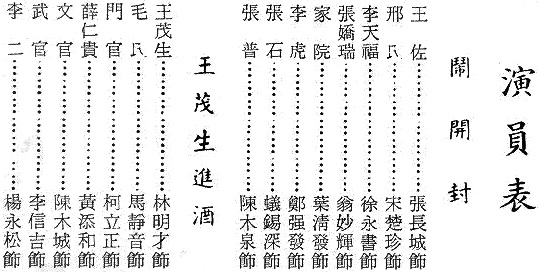 演員表
鬧開封
王佐…………張長城飾
邢氏…………宋楚珍飾
李天福…………徐永書飾
張嬌瑞…………翁妙輝飾
家院…………葉清發飾
李虎…………鄭强發飾
張石…………蟻錫深飾
張普…………陳木泉飾
王茂生進酒
王茂生…………林明才飾
毛氏…………馬靜音飾
門官…………柯立正飾
薛仁貴…………黃添和飾
文官…………陳木城飾
武官…………李信吉飾
李二…………楊永松飾